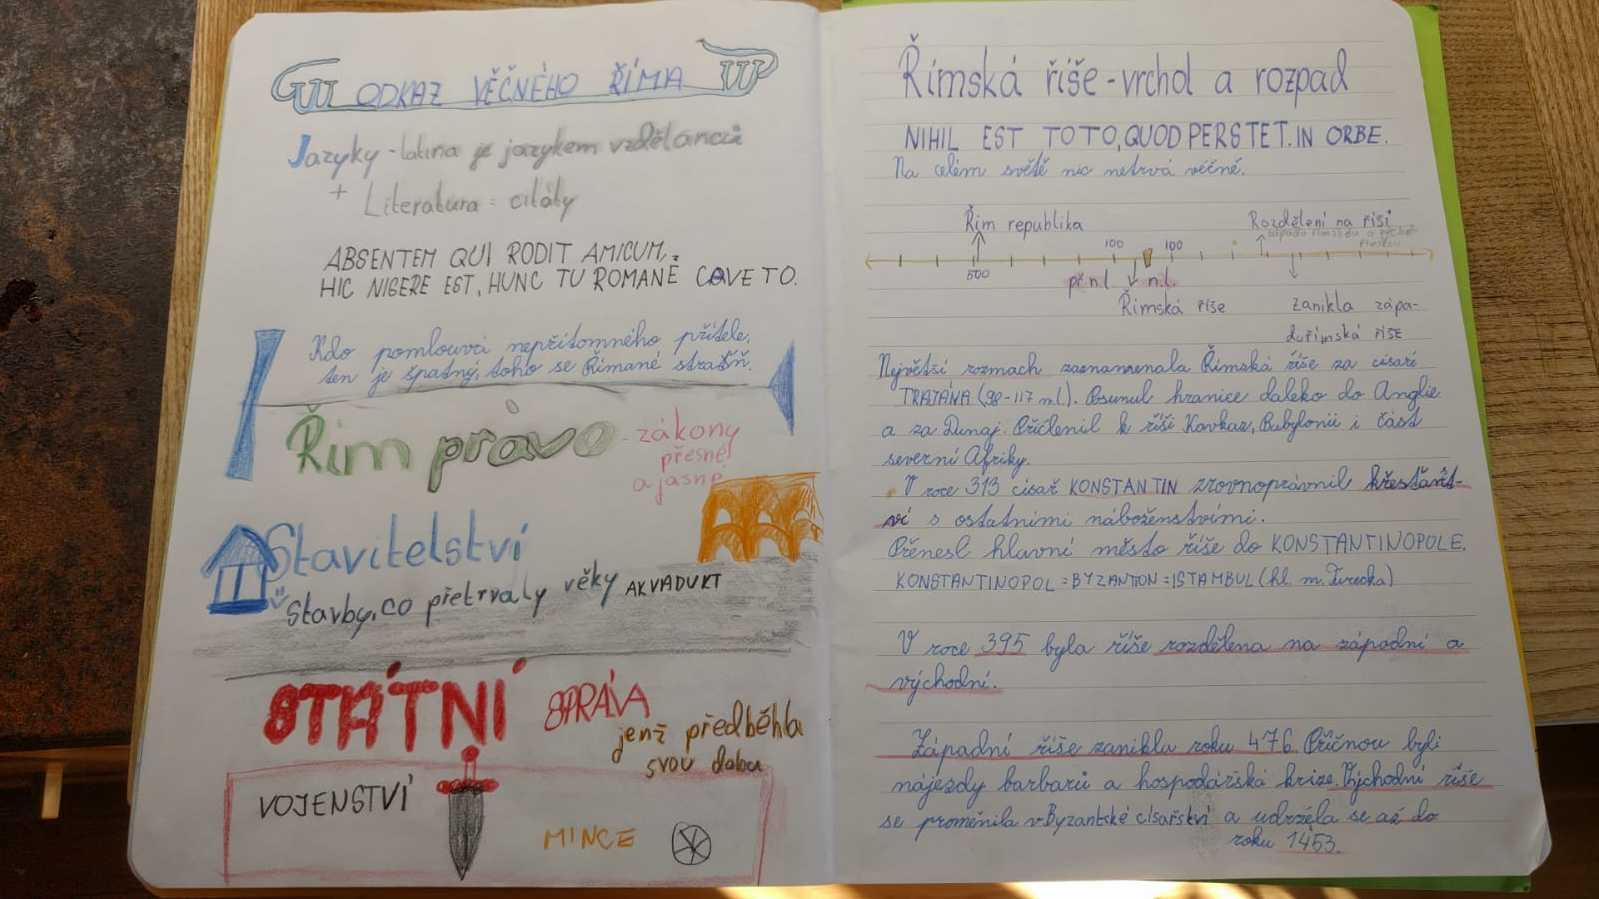 ODKAZ VĚČNÉHO ŘÍMA
Jazyky - latina je jazykem vzdělanců
+ Literatura = citáty
ABSENTEM QUI RODIT AMICUM,
HIC NIGERE EST, HUNC TU ROMANĚ CAVE TO.
Kdo pomlouvá nepřítomného přítele,
ten je špatný, toho se Římané straň.
Řím právo - zákony
přesné
a jasné
Stavitelství
Stavby, co přetrvaly věky AKVADUKT
STÁTNÍ SPRÁVA
jenž předběhla
svou dobu
VOJENSTVÍ
MINCE
Římská říše - vrchol a rozpad
NIHIL EST TOTO, QUOD PERSTET. IN ORBE.
Na celém světě nic netrvá věčně.
Řím republika
Rozdělení na říši
západo římskou a východo
římskou
100 100
500
př.n.l. n.l.
Římská říše
zanikla zápa-
dořímská říše
Největší rozmach zaznamenala Římská říše za císaře
TRAJÁNA (98-117 n.l.). Posunul hranice daleko do Anglie
a za Dunaj. Přičlenil k říši Kavkaz, Babylonii i část
severní Afriky.
V roce 313 císař KONSTANTIN zrovnoprávnil křesťanst-
ví s ostatními náboženstvími.
Přenesl hlavní město říše do KONSTANTINOPOLE.
KONSTANTINOPOL = BYZANTION = ISTAMBUL (hl. m. Turecka)
V roce 395 byla říše rozdělena na západní a
východní.
Západní říše zanikla roku 476. Příčinou byli
nájezdy barbarů a hospodářská krize. Východní říše
se proměnila v Byzantské císařství a udržela se až do
roku 1453.